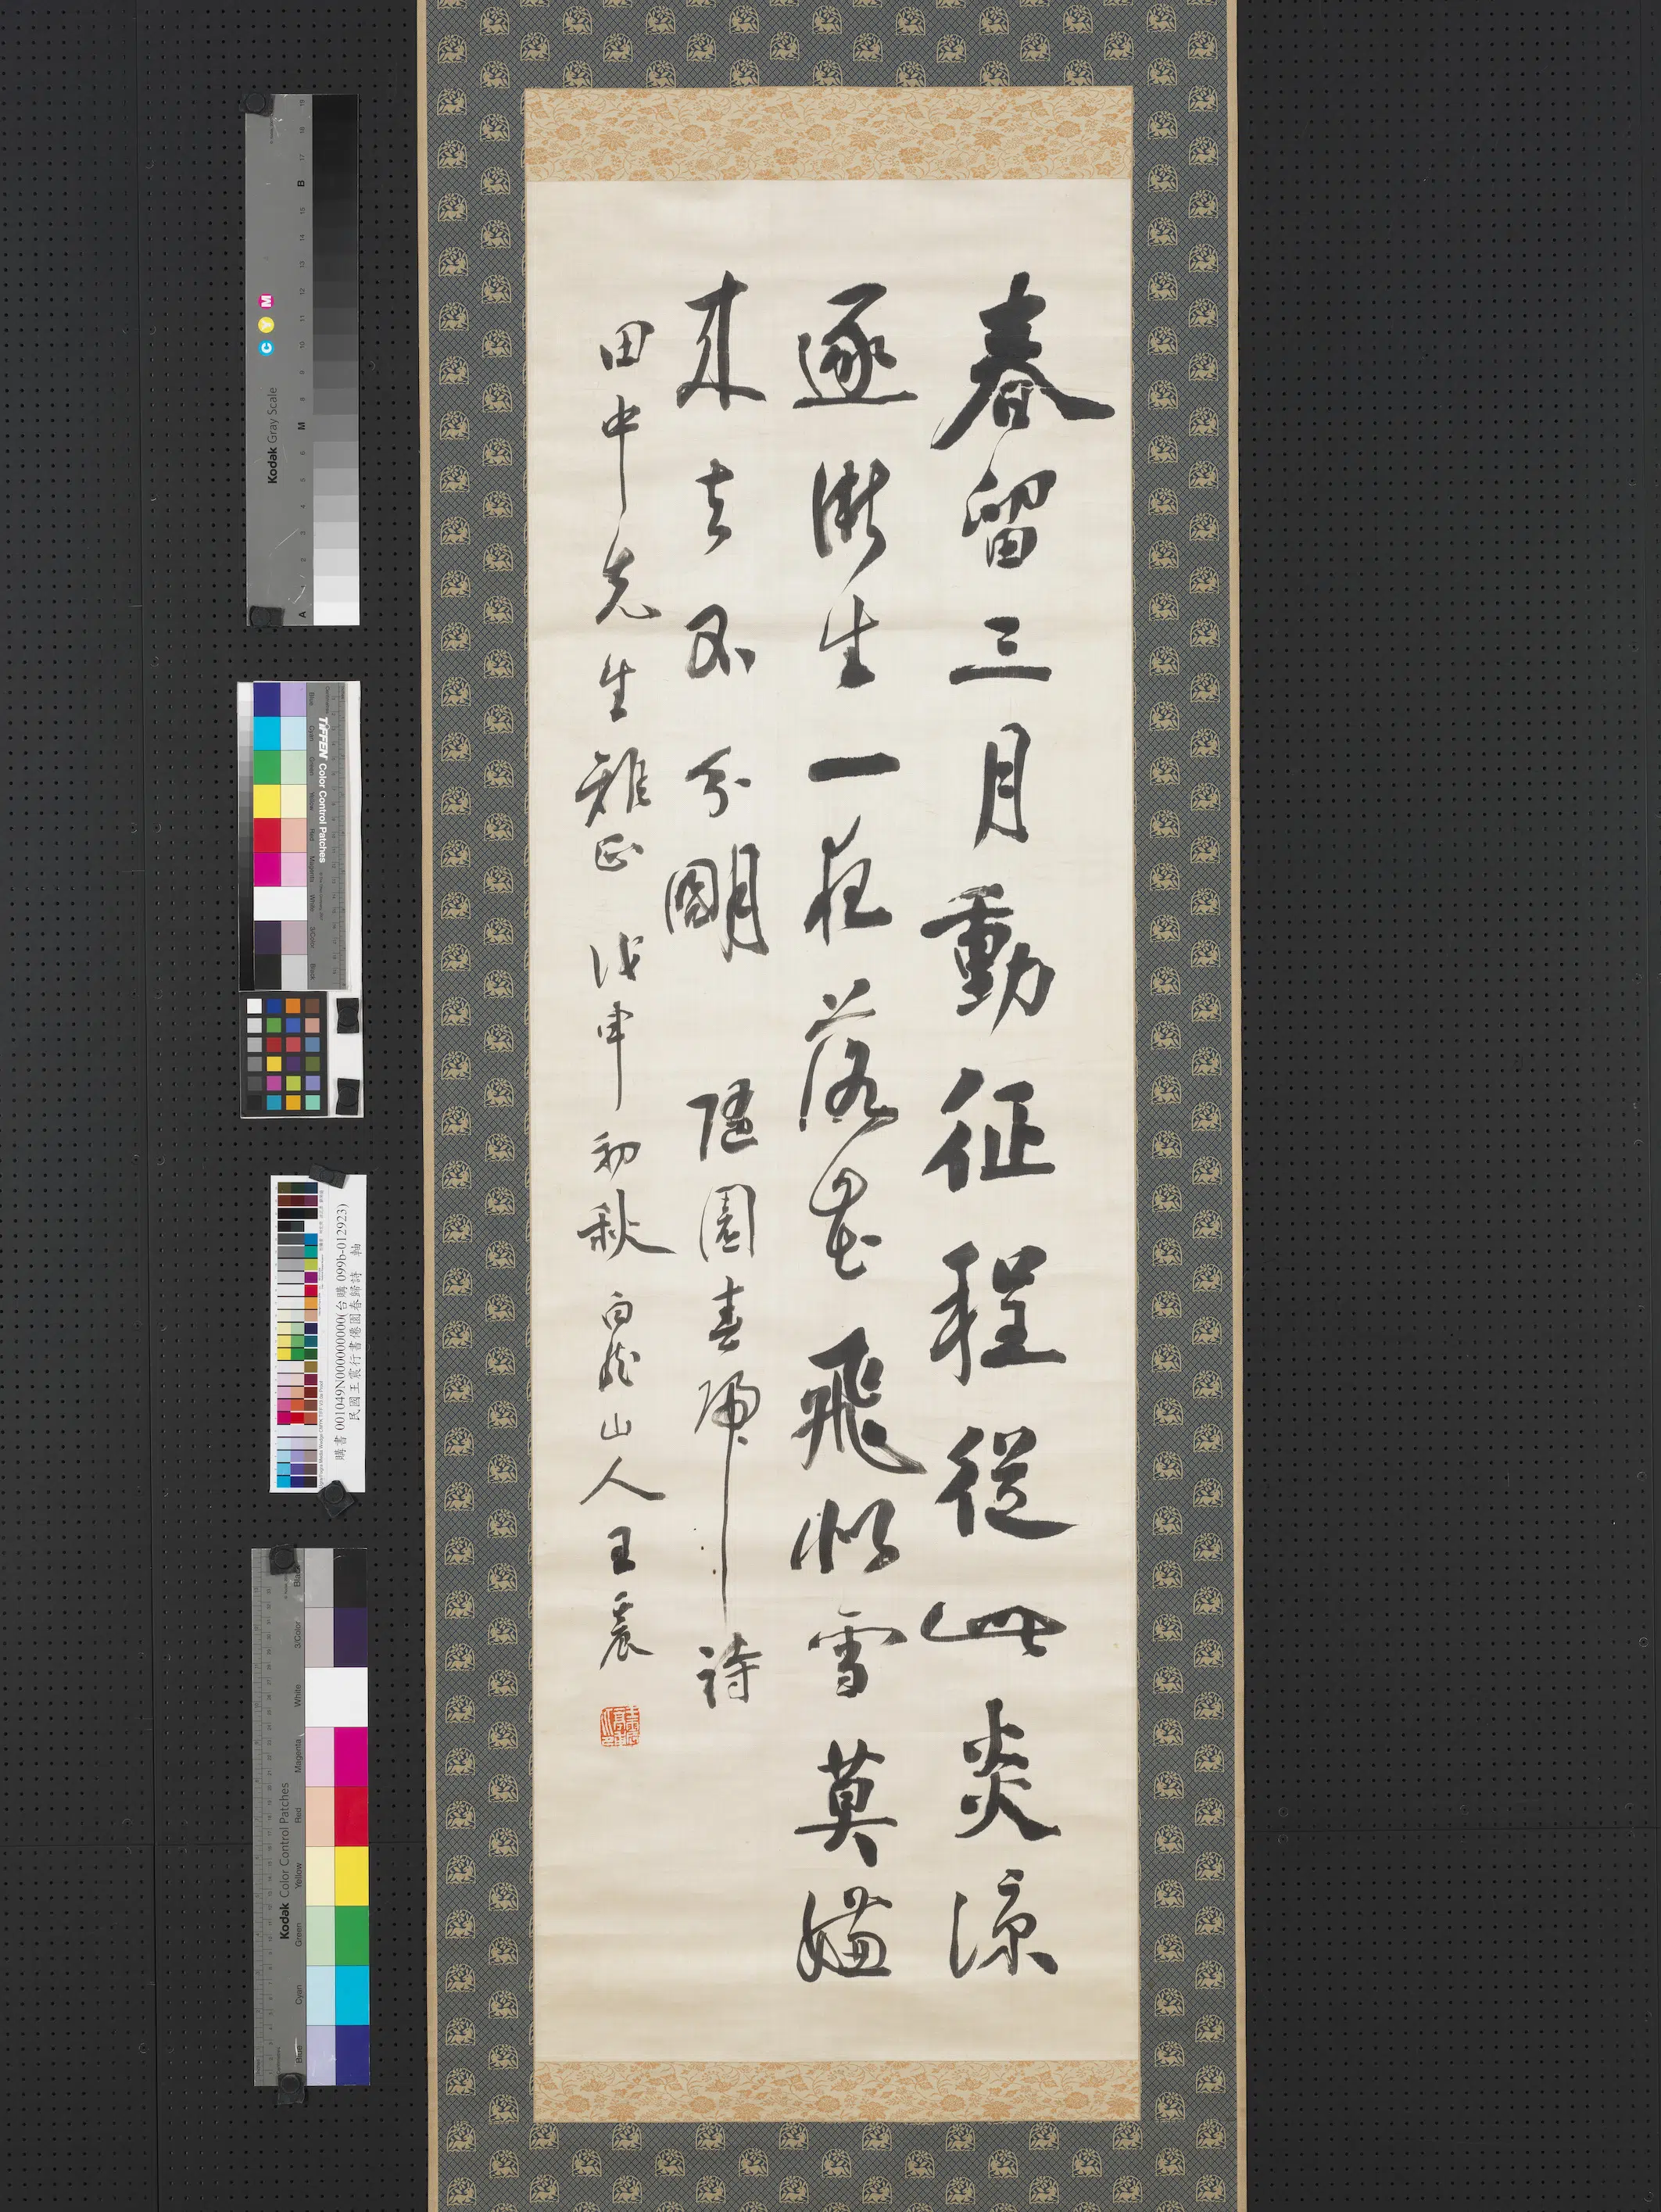 春留三月動征程從此炎涼
逐漸生一夜落花飛似雪莫嫌
來去不分明 園春歸詩
田中先生雅正 戊申初秋 白龍山人王震
Kodak Gray Scale
C Y M
A 1 2 3 4 5 6 M 8 9 10 11 12 13 14 15 B 17 18 19
TIFFEN Color Control Patches
購書 001049N000000000(台購 099b-012923)
民國王震行書園春歸詩 軸
Kodak Color Control Patches
Blue Cyan Green Yellow Red Magenta White 3/Color Black